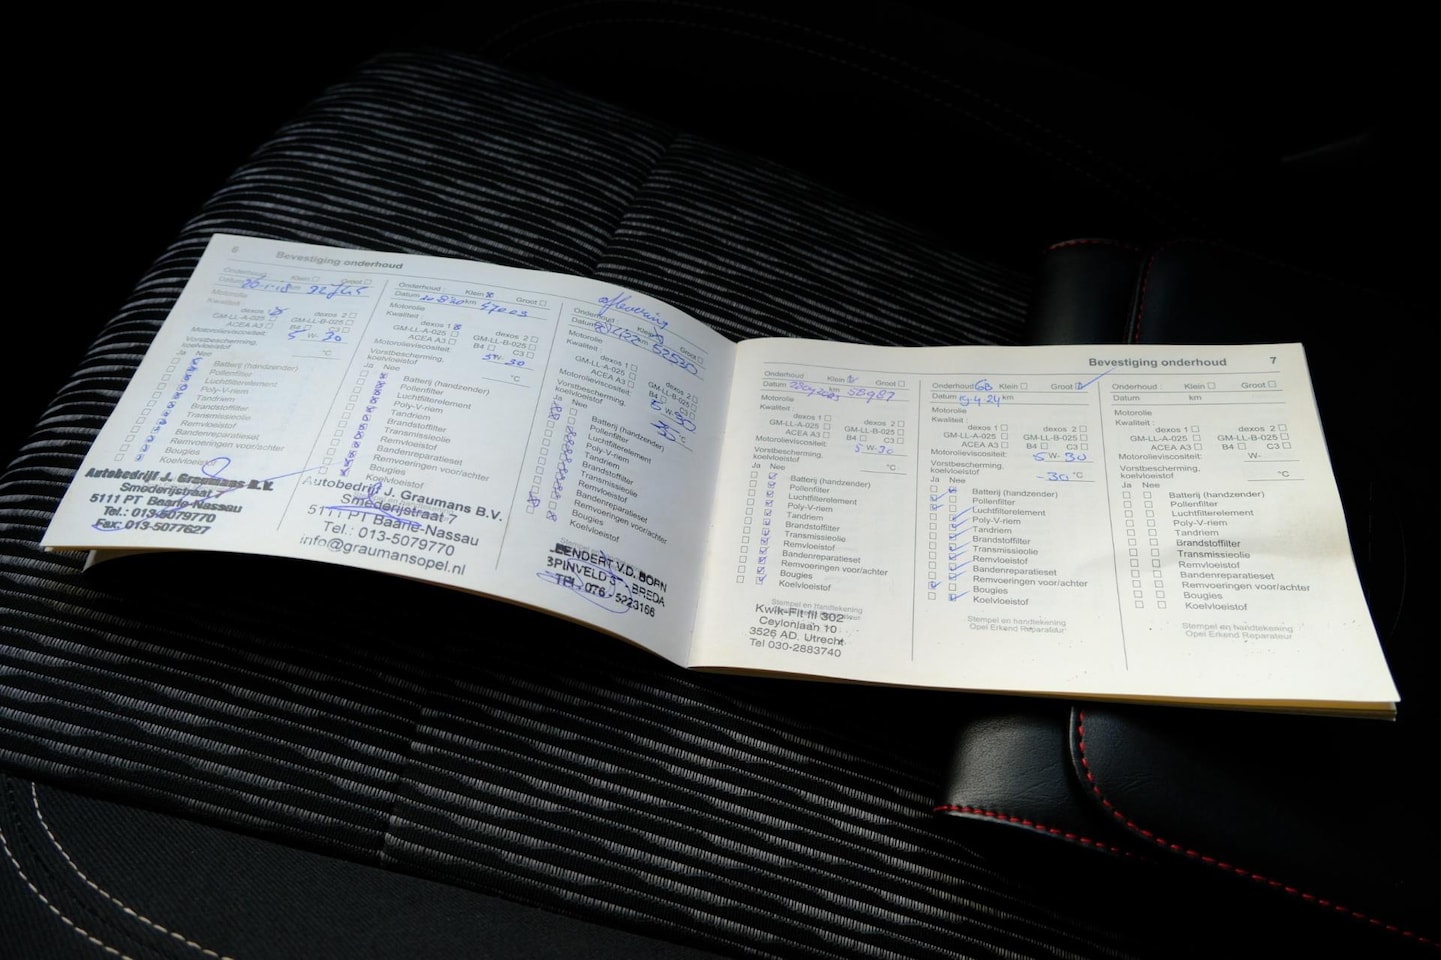 6
Bevestiging onderhoud
Onderhoud : Klein Groot
Datum km
Motorolie
Kwaliteit :
dexos 1 dexos 2
GM-LL-A-025 GM-LL-B-025
ACEA A3 B4 C3
Motorolieviscositeit: 5 W- 30
Vorstbescherming,
koelvloeistof °C
Ja Nee
Batterij (handzender)
Pollenfilter
Luchtfilterelement
Poly-V-riem
Tandriem
Brandstoffilter
Transmissieolie
Remvloeistof
Bandenreparatieset
Remvoeringen voor/achter
Bougies
Koelvloeistof
Autobedrijf J. Graumans B.V.
Smederijstraat 7
5111 PT Baarle-Nassau
Tel.: 013-5079770
Fax: 013-5077627
Onderhoud : Klein Groot
Datum km 47003
Motorolie
Kwaliteit :
dexos 1 dexos 2
GM-LL-A-025 GM-LL-B-025
ACEA A3 B4 C3
Motorolieviscositeit: 5 W- 30
Vorstbescherming,
koelvloeistof °C
Ja Nee
Batterij (handzender)
Pollenfilter
Luchtfilterelement
Poly-V-riem
Tandriem
Brandstoffilter
Transmissieolie
Remvloeistof
Bandenreparatieset
Remvoeringen voor/achter
Bougies
Koelvloeistof
Autobedrijf J. Graumans B.V.
Smederijstraat 7
5111 PT Baarle-Nassau
Tel.: 013-5079770
info@graumansopel.nl
aflevering
Onderhoud : Klein Groot
Datum km 52520
Motorolie
Kwaliteit :
dexos 1 dexos 2
GM-LL-A-025 GM-LL-B-025
ACEA A3 B4 C3
Motorolieviscositeit: 5 W- 30
Vorstbescherming,
koelvloeistof °C
Ja Nee
Batterij (handzender)
Pollenfilter
Luchtfilterelement
Poly-V-riem
Tandriem
Brandstoffilter
Transmissieolie
Remvloeistof
Bandenreparatieset
Remvoeringen voor/achter
Bougies
Koelvloeistof
LEENDERT V.D. BORN
SPINVELD - BREDA
TEL. 076 - 5223166
Bevestiging onderhoud 7
Onderhoud : Klein Groot
Datum km 58987
Motorolie
Kwaliteit :
dexos 1 dexos 2
GM-LL-A-025 GM-LL-B-025
ACEA A3 B4 C3
Motorolieviscositeit: 5 W- 30
Vorstbescherming,
koelvloeistof °C
Ja Nee
Batterij (handzender)
Pollenfilter
Luchtfilterelement
Poly-V-riem
Tandriem
Brandstoffilter
Transmissieolie
Remvloeistof
Bandenreparatieset
Remvoeringen voor/achter
Bougies
Koelvloeistof
Stempel en handtekening
Kwik-Fit fil 302
Ceylonlaan 10
3526 AD. Utrecht
Tel 030-2883740
Onderhoud Klein Groot
Datum 19.4.24 km
Motorolie
Kwaliteit :
dexos 1 dexos 2
GM-LL-A-025 GM-LL-B-025
ACEA A3 B4 C3
Motorolieviscositeit: 5 W- 30
Vorstbescherming,
koelvloeistof -30 °C
Ja Nee
Batterij (handzender)
Pollenfilter
Luchtfilterelement
Poly-V-riem
Tandriem
Brandstoffilter
Transmissieolie
Remvloeistof
Bandenreparatieset
Remvoeringen voor/achter
Bougies
Koelvloeistof
Stempel en handtekening
Opel Erkend Reparateur
Onderhoud : Klein Groot
Datum km
Motorolie
Kwaliteit :
dexos 1 dexos 2
GM-LL-A-025 GM-LL-B-025
ACEA A3 B4 C3
Motorolieviscositeit: W-
Vorstbescherming,
koelvloeistof °C
Ja Nee
Batterij (handzender)
Pollenfilter
Luchtfilterelement
Poly-V-riem
Tandriem
Brandstoffilter
Transmissieolie
Remvloeistof
Bandenreparatieset
Remvoeringen voor/achter
Bougies
Koelvloeistof
Stempel en handtekening
Opel Erkend Reparateur